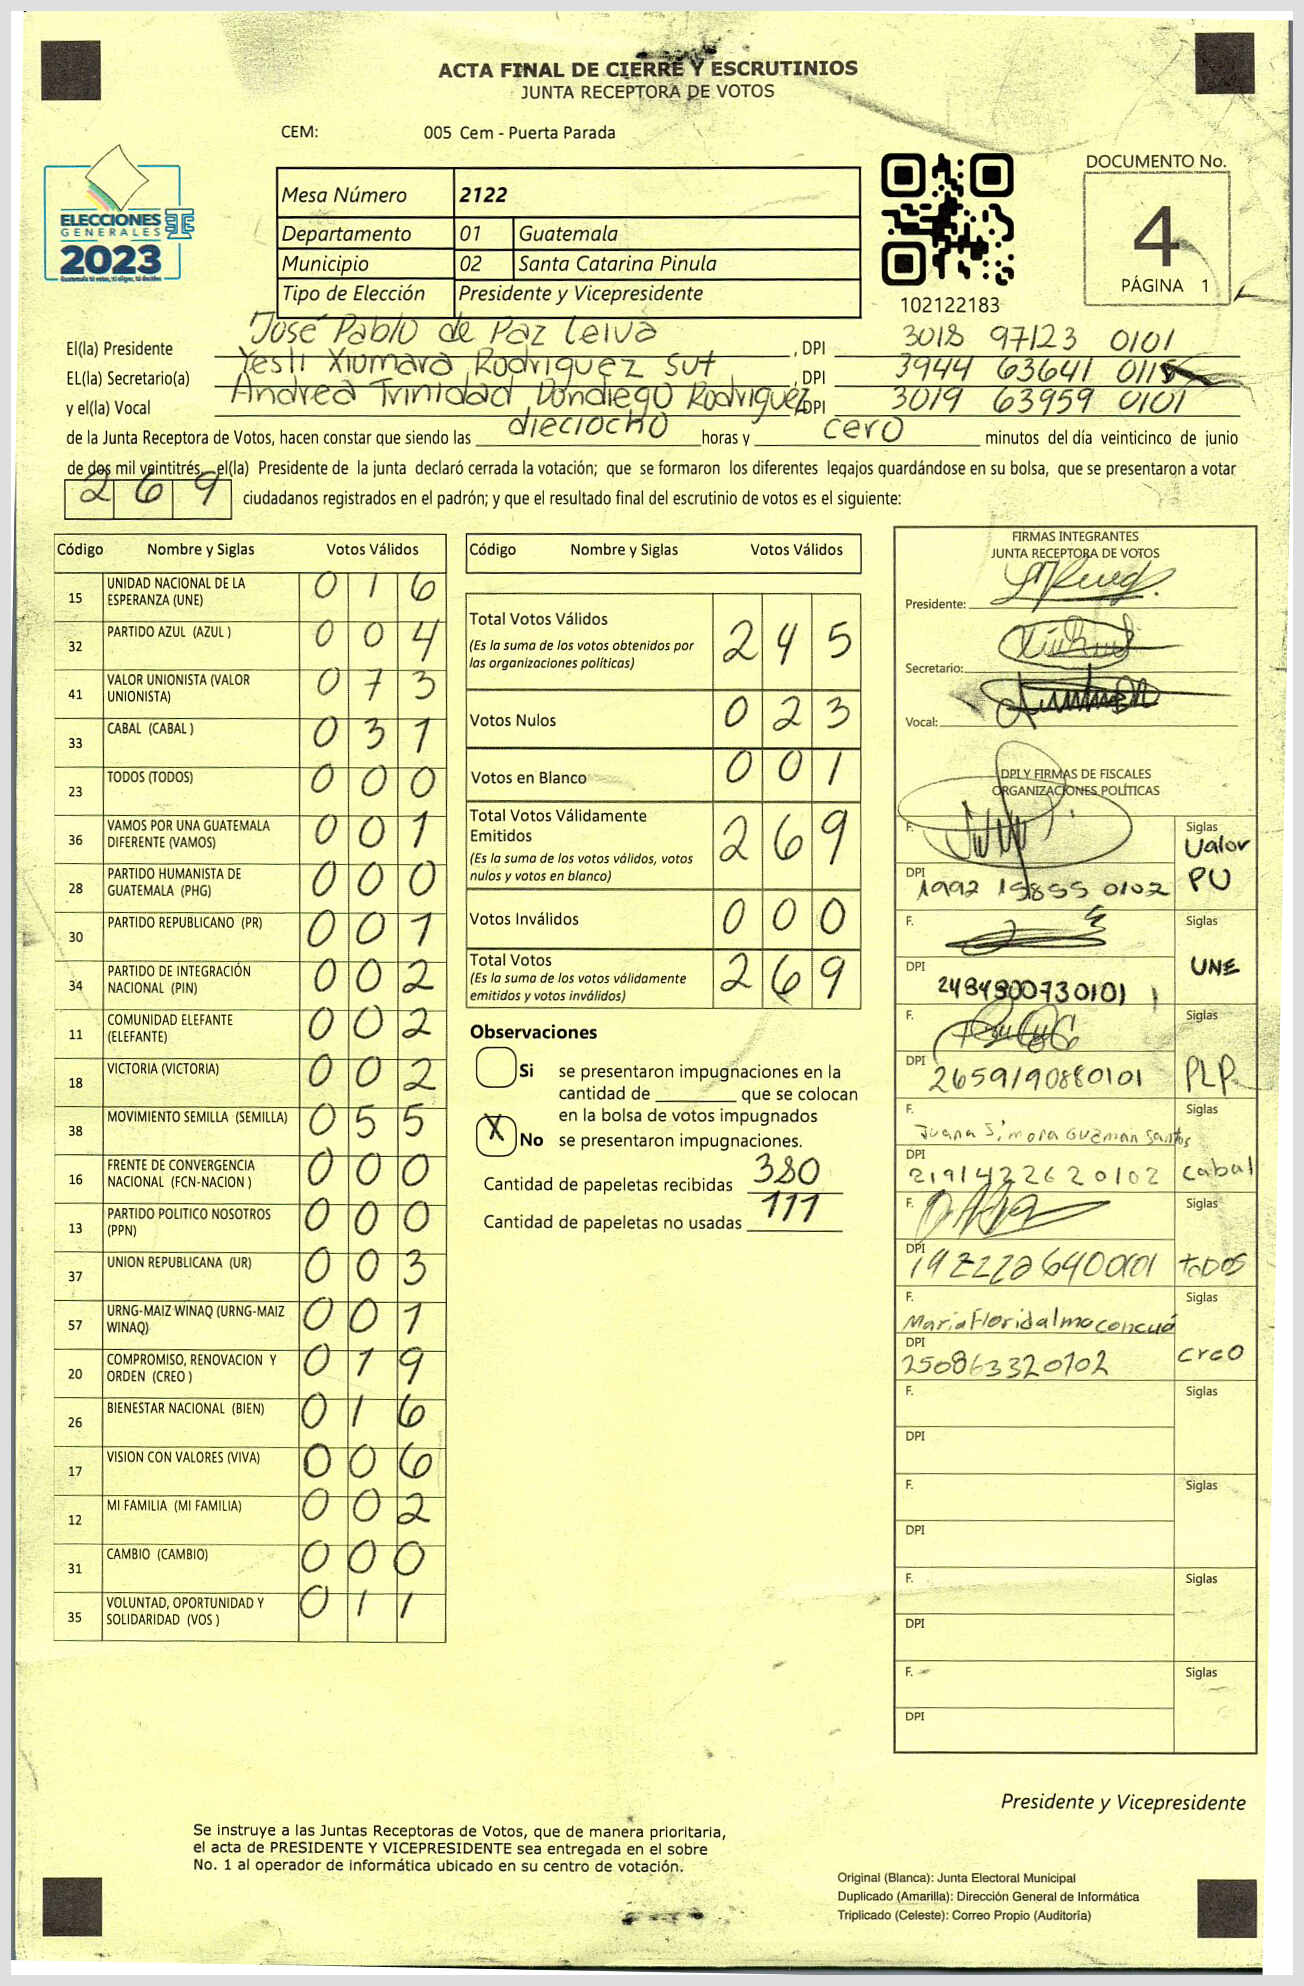 ACTA FINAL DE CIERRE Y ESCRUTINIOS
JUNTA RECEPTORA DE VOTOS
CEM: 005 Cem - Puerta Parada
ELECCIONES
GENERALES
2023
Mesa Número 2122
Departamento 01 Guatemala
Municipio 02 Santa Catarina Pinula
Tipo de Elección Presidente y Vicepresidente
102122183
DOCUMENTO No.
4
PÁGINA 1
El(la) Presidente José Pablo de Paz Leiva , DPI 3018 97123 0101
EL(la) Secretario(a) Yesli Xiomara Rodriguez Sut , DPI 3944 63641 0115
y el(la) Vocal Andrea Trinidad Dondiego Rodriguez , DPI 3019 63959 0101
de la Junta Receptora de Votos, hacen constar que siendo las dieciocho horas y cero minutos del día veinticinco de junio
de dos mil veintitrés, el(la) Presidente de la junta declaró cerrada la votación; que se formaron los diferentes legajos guardándose en su bolsa, que se presentaron a votar
269 ciudadanos registrados en el padrón; y que el resultado final del escrutinio de votos es el siguiente:
Código Nombre y Siglas Votos Válidos
15 UNIDAD NACIONAL DE LA ESPERANZA (UNE) 016
32 PARTIDO AZUL (AZUL ) 004
41 VALOR UNIONISTA (VALOR UNIONISTA) 073
33 CABAL (CABAL ) 031
23 TODOS (TODOS) 000
36 VAMOS POR UNA GUATEMALA DIFERENTE (VAMOS) 001
28 PARTIDO HUMANISTA DE GUATEMALA (PHG) 000
30 PARTIDO REPUBLICANO (PR) 001
34 PARTIDO DE INTEGRACIÓN NACIONAL (PIN) 002
11 COMUNIDAD ELEFANTE (ELEFANTE) 002
18 VICTORIA (VICTORIA) 002
38 MOVIMIENTO SEMILLA (SEMILLA) 055
16 FRENTE DE CONVERGENCIA NACIONAL (FCN-NACION ) 000
13 PARTIDO POLITICO NOSOTROS (PPN) 000
37 UNION REPUBLICANA (UR) 003
57 URNG-MAIZ WINAQ (URNG-MAIZ WINAQ) 001
20 COMPROMISO, RENOVACION Y ORDEN (CREO ) 019
26 BIENESTAR NACIONAL (BIEN) 016
17 VISION CON VALORES (VIVA) 006
12 MI FAMILIA (MI FAMILIA) 002
31 CAMBIO (CAMBIO) 000
35 VOLUNTAD, OPORTUNIDAD Y SOLIDARIDAD (VOS ) 011
Código Nombre y Siglas Votos Válidos
Total Votos Válidos 245
(Es la suma de los votos obtenidos por
las organizaciones políticas)
Votos Nulos 023
Votos en Blanco 001
Total Votos Válidamente
Emitidos 269
(Es la suma de los votos válidos, votos
nulos y votos en blanco)
Votos Inválidos 000
Total Votos 269
(Es la suma de los votos válidamente
emitidos y votos inválidos)
Observaciones
Si se presentaron impugnaciones en la
cantidad de ________ que se colocan
en la bolsa de votos impugnados
X No se presentaron impugnaciones.
Cantidad de papeletas recibidas 380
Cantidad de papeletas no usadas 111
FIRMAS INTEGRANTES
JUNTA RECEPTORA DE VOTOS
Presidente:
Secretario:
Vocal:
DPI Y FIRMAS DE FISCALES
ORGANIZACIONES POLÍTICAS
F. Siglas Valor
DPI 1992 15855 0102 PU
F. Siglas
DPI 2484800730101 UNE
F. Siglas
DPI 2659190880101 PLP
F. Juana Guzman Santos Siglas
DPI 2191422620102 cabal
F. Siglas
DPI toDOS
F. Siglas
DPI 250863320102 creo
F. Siglas
DPI
F. Siglas
DPI
F. Siglas
DPI
F. Siglas
DPI
Presidente y Vicepresidente
Se instruye a las Juntas Receptoras de Votos, que de manera prioritaria,
el acta de PRESIDENTE Y VICEPRESIDENTE sea entregada en el sobre
No. 1 al operador de informática ubicado en su centro de votación.
Original (Blanca): Junta Electoral Municipal
Duplicado (Amarilla): Dirección General de Informática
Triplicado (Celeste): Correo Propio (Auditoría)